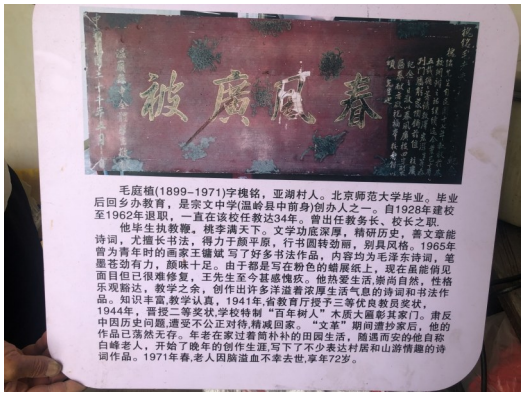 被廣風春
毛庭植(1899-1971)字槐铭，亚湖村人。北京师范大学毕业。毕业
后回乡办教育，是宗文中学(温岭县中前身)创办人之一。自1928年建校
至1962年退职，一直在该校任教达34年。曾出任教务长、校长之职。
他毕生执教鞭，桃李满天下。文学功底深厚，精研历史，善文章能
诗词，尤擅长书法，得力于颜平原，行书圆转劲丽，别具风格。1965年
曾为青年时的画家王镛斌写了好多书法作品，内容均为毛泽东诗词，笔
墨苍劲有力，颜味十足。由于都是写在粉色的蜡展纸上，现在虽能俏见
面目但已很难修复，王先生至今甚感愧疚。他热爱生活，崇尚自然，性格
乐观豁达，教学之余，创作出许多洋溢着浓厚生活气息的诗词和书法作
品。知识丰富，教学认真，1941年，省教育厅授予三等优良教员奖状，
1944年，晋授二等奖状，学校特制“百年树人”木质大匾彰其家门。肃反
中因历史问题，遭受不公正对待，精减回家。“文革”期间遭抄家后，他的
作品已荡然无存。年老在家过着简朴补的田园生活，随遇而安的他自称
白峰老人，开始了晚年的创作生涯，写下了不少表达村居和山游情趣的诗
词作品。1971年春，老人因脑溢血不幸去世，享年72岁。